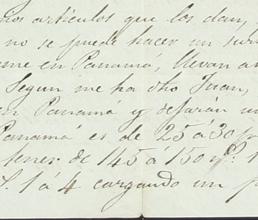 mos artículos que los dan,
no se puede hacer un
me en Panamá, llevan
Segun me ha dho Juan,
en Panamá y dejarán un
Panamá es de 25 á 30
tener de 145 a 150
1 á 4 cargando un